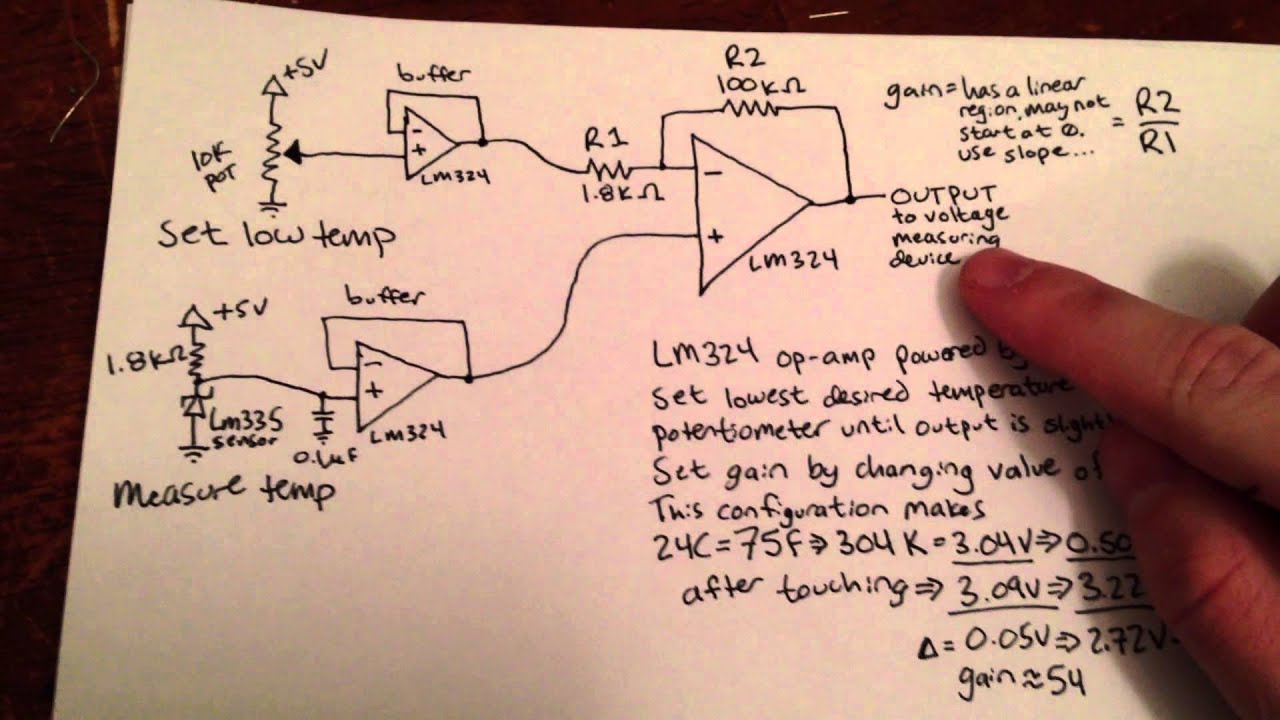 +5V
10K
POT
Set low temp
buffer
-
+
LM324
R1
1.8KΩ
R2
100KΩ
-
+
LM324
gain = has a linear
region, may not
start at 0.
use slope...
= R2
R1
OUTPUT
to voltage
measuring
device
+5V
1.8KΩ
Lm335
sensor
0.1uF
measure temp
buffer
-
+
LM324
LM324 op-amp powered
Set lowest desired temperature
potentiometer until output is
Set gain by changing value of
This configuration makes
24C = 75F ⇒ 304 K = 3.04V ⇒ 0.50
after touching ⇒ 3.09V ⇒ 3.22
Δ = 0.05V ⇒ 2.72V
gain ≈ 54